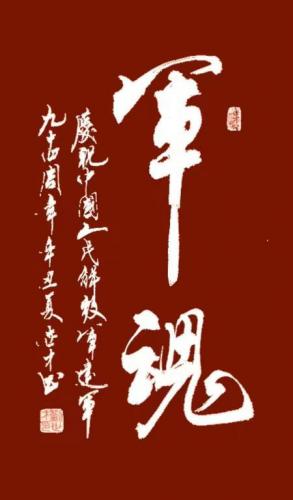 軍魂
慶祝中國人民解放軍建軍
九十四周年辛丑夏志才书